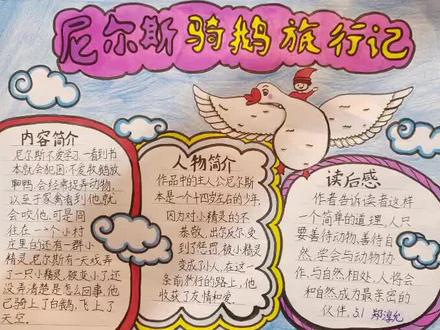 尼尔斯骑鹅旅行记
内容简介
尼尔斯不爱学习,一看到书
本就会犯困,不爱牧鹅放
鸭鸭,会经常捉弄动物,
以至于家禽看到他,就
会咬他,可是同
往在一个小村
庄里的还有一群小
精灵,尼尔斯有一天戏弄
了一只小精灵,被变小了,还
没弄清楚是怎么回事,他
已骑上了白鹅,飞上了
天空.
人物简介
作品中的主人公尼尔斯
本是一个十四岁左右的少年,
因为对小精灵的不
恭敬,出尔反尔,受
到了惩罚,被小精灵
变成了小人,在这一
条前行的路上,他
收获了友情和爱
读后感
作者告诉读者这样
一个简单的道理,人只
要善待动物,善待自
然,学会与动物协
作,与自然相处,人将会
和自然成为最亲密的
伙伴.